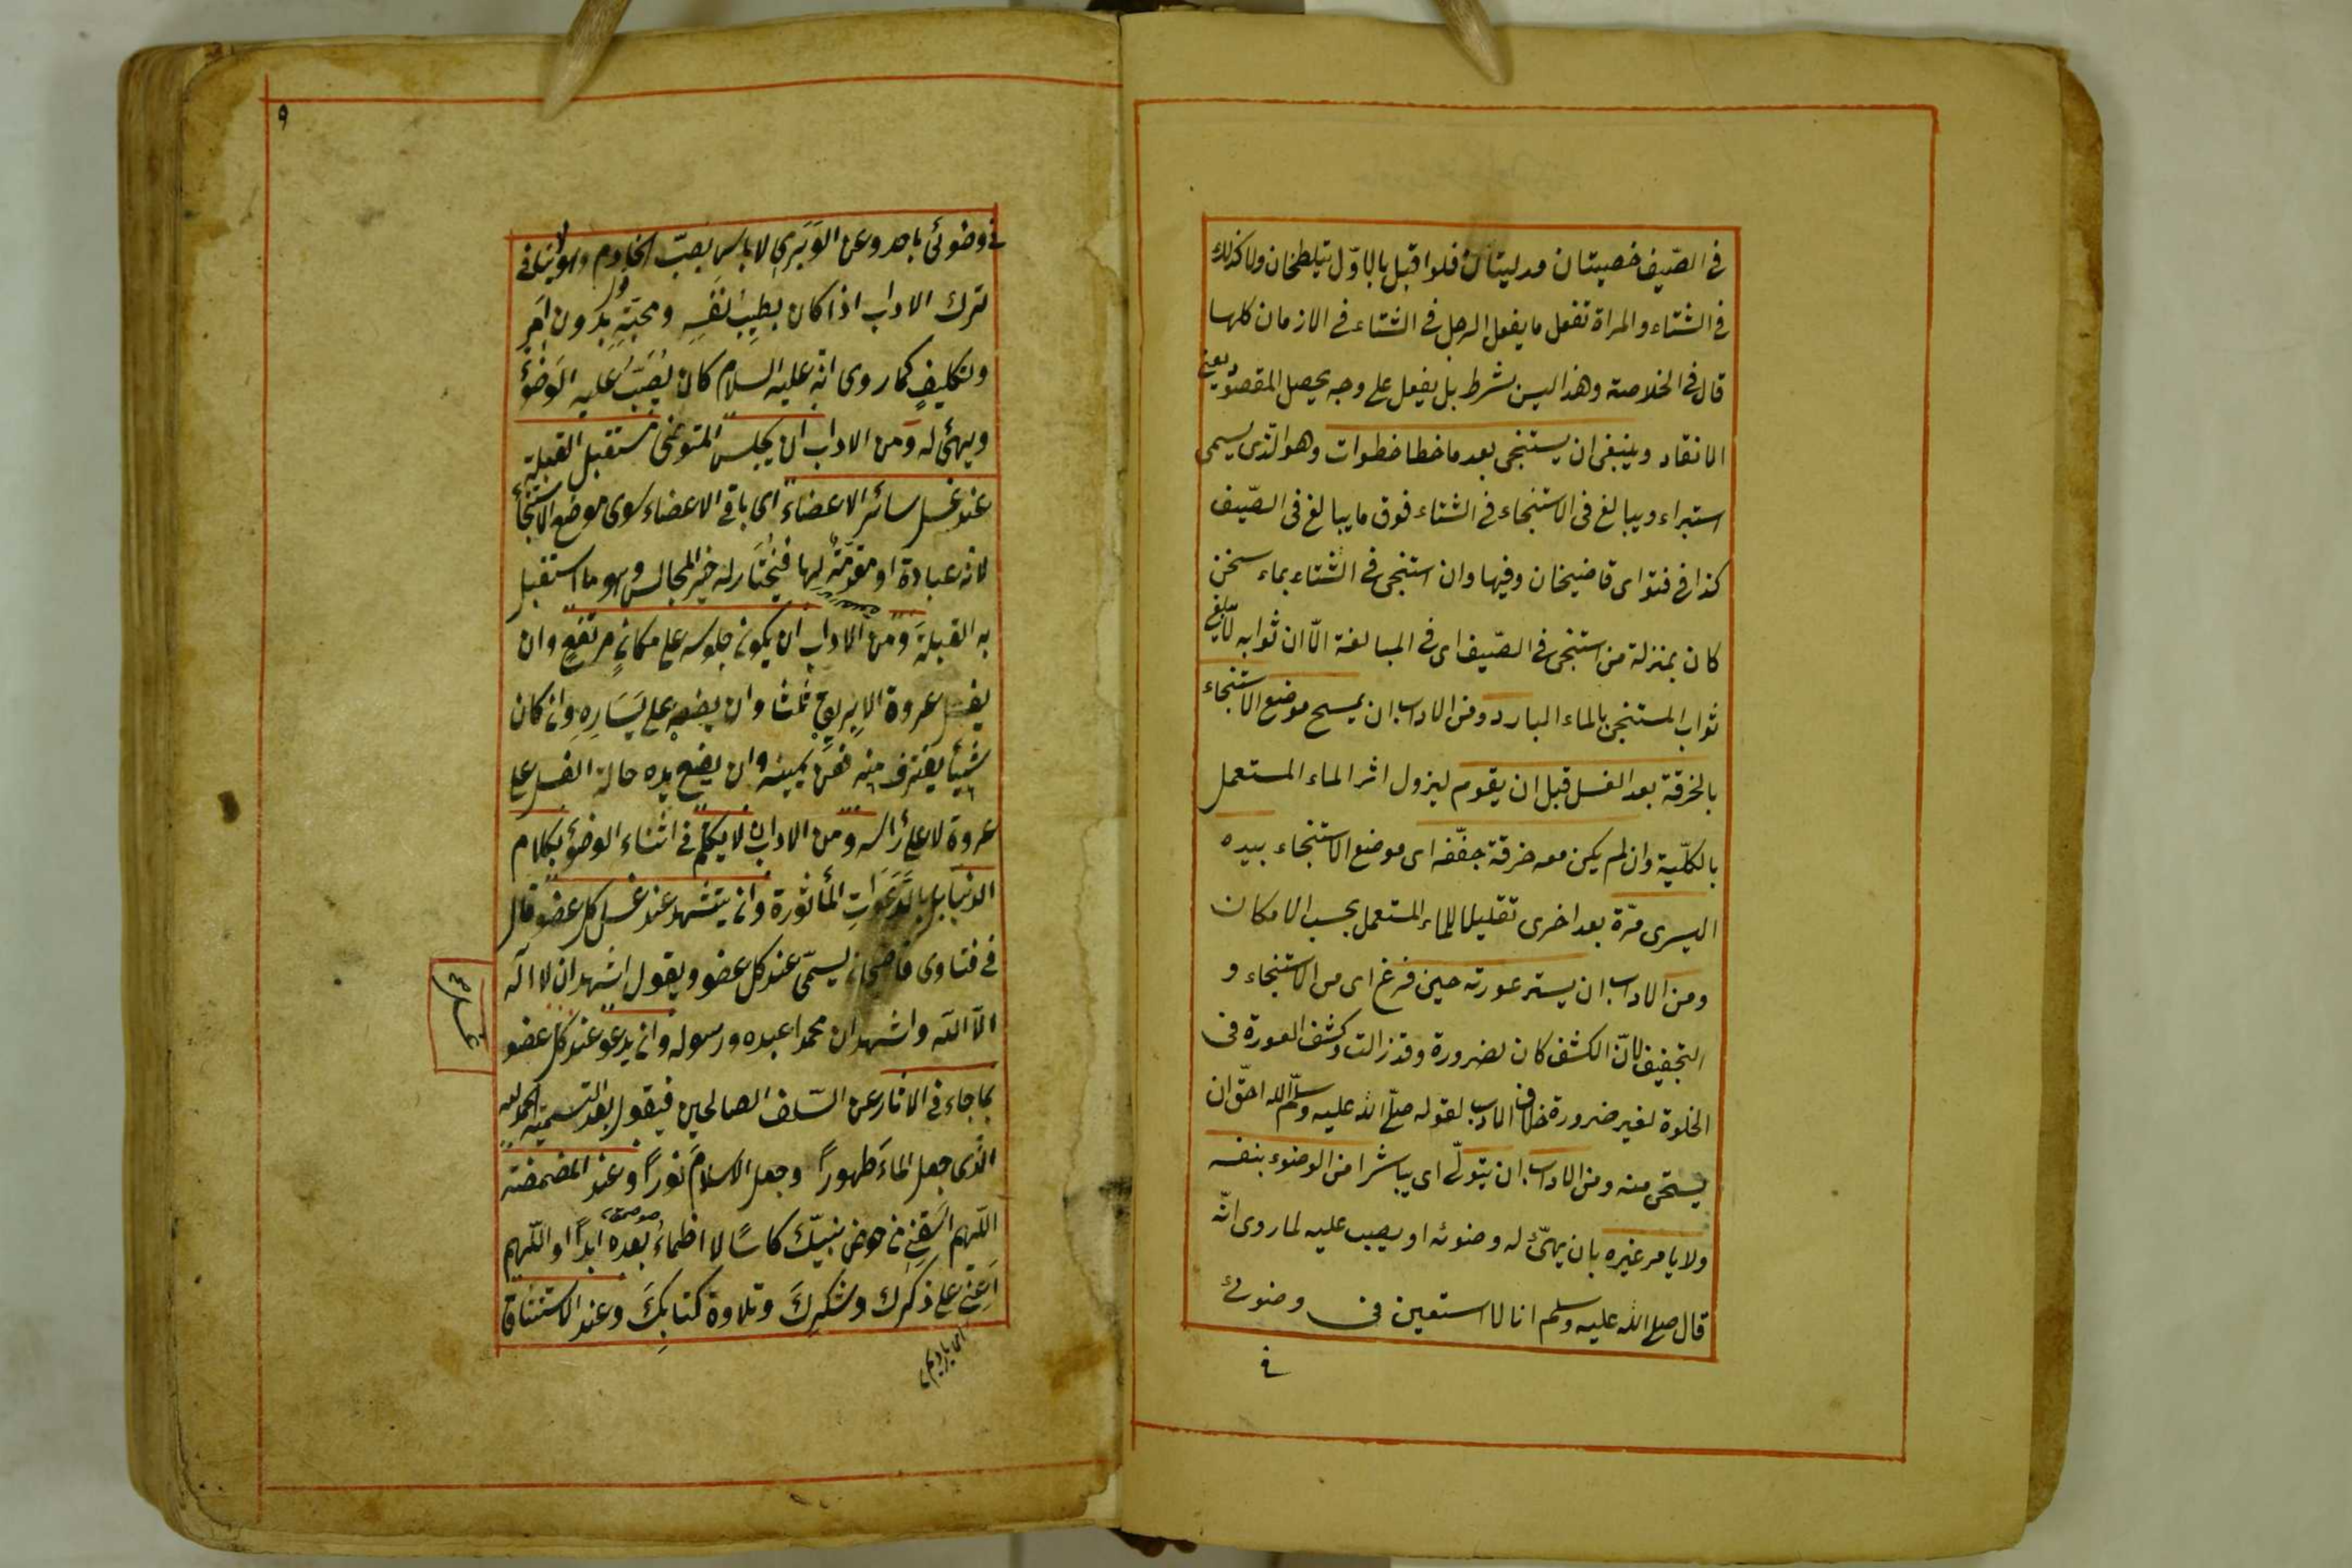 في الصّيف خصيتان مدليتان فلو اقبل بالاوّل تيلطخان ولا كذلك
في الشتاء والمراة تفعل ما يفعل الرجل في الشتاء في الازمان كلها
قال في الخلاصة وهذا ليس بشرط بل يفعل على وجه يحصل المقصود يعنى
الانقاء وينبغى ان يستنجى بعد ما خطا خطوات وهو الّذى يسمى
استبراء ويبالغ فى الاستنجاء في الشتاء فوق ما يبالغ فى الصّيف
كذا في فتواى قاضيخان وفيها وان استنجى في الشتاء بماء سخن
كان بمنزلة من استنجى في الصّيف اى في المبالغة الّا ان ثوابه لا يبلغ
ثواب المستنجى بالماء البارد ومن الاداب ان يمسح موضع الاستنجاء
بالخرقة بعد الغسل قبل ان يقوم ليزول اثر الماء المستعمل
بالكلّية وان لم يكن معه خرقة جفّفه اى موضع الاستنجاء بيده
اليسرى مرّة بعد اخرى تقليلا للماء المستعمل بحسب الامكان
ومن الاداب ان يستر عورته حين فرغ اى من الاستنجاء و
التجفيف لانّ الكشف كان لضرورة وقد زالت وكشف العورة فى
الخلوة لغير ضرورة خلاف الادب لقوله صلّى الله عليه وسلّم الله احقّ ان
يستحى منه ومن الاداب ان يتولّى اى يباشر امر الوضوء بنفسه
ولا يامر غيره بان يهيّئ له وضوئه او يصب عليه لما روى انّه
قال صلى الله عليه وسلم انا لا استعين فى وضوئى
في
٩
في وضوئى باحد وعن الوَبَرِى لا باس بصبّ الخادم وهو لا ينافى
ترك الاداب اذا كان بطِيبِ نفسِهِ ومحبّتِه بدون اَمرٍ
وتكليفٍ كما روى انّه عليه السلام كان يُصَبّ عليه الوَضوُء
ويهيّئ له ومن الاداب ان يجلس المتوضى مستقبل القبلة
عند غسل سائر الاعضاء اى باقى الاعضاء سوى موضع الاستنجاء
لانه عبادة او مقدّمةٌ لها فيُختَار له خير المجالس وهو ما استقبل
به القبلة ومن الاداب ان يكون جلوسه على مكانٍ مرتفعٍ وان
يغسل عروة الاِبريق ثلثا وان يضعه على يَسَارِهِ وان كان
شيئاً يغترف منه فعن يمينه وان يضع يده حالة الغسل على
عروة لا على راسه ومن الاداب ان لا يتكلم في اثناء الوضؤ بكلام
الدنيا بل بالدَّعَوَاتِ المأثورة وان يتشهد عند غسل كل عضو قال
في فتاوى قاضيخان يسمّى عند كل عضو ويقول اشهد ان لا اله
الّا الله واشهد ان محمدا عبده ورسوله وان يدعو عند كل عضو
بما جاء في الاثار عن السّلف الصالحين فيقول بعد التسمية الحمد لله
الذى جعل الماءَ طهوراً وجعل الاسلامَ نوراً وعند المضمضة
اللّهم اسقِنِى من حوض نبيّك كاسًا لا اظماءُ بعده ابداً او اللّهم
اَعِنّى على ذكرِك وشكرِكَ وتلاوة كتابِكَ وعند الاستنشاق